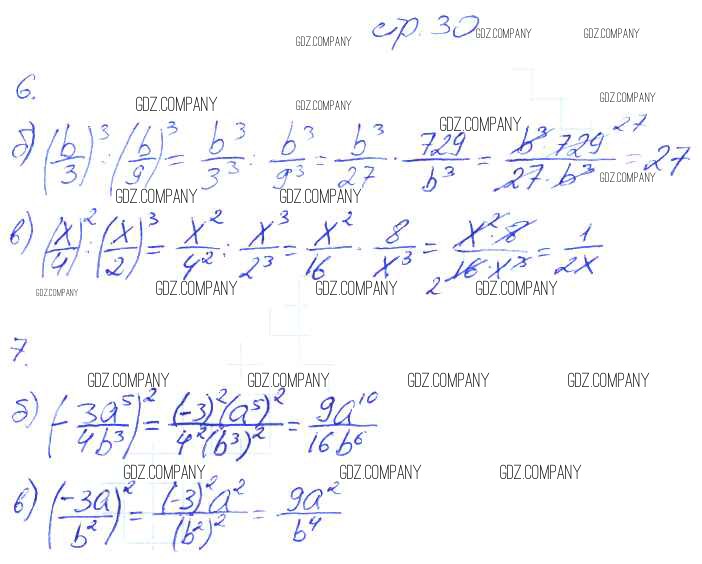 стр. 30
GDZ.COMPANY GDZ.COMPANY GDZ.COMPANY
6.
GDZ.COMPANY GDZ.COMPANY GDZ.COMPANY
GDZ.COMPANY
б) (b/3)³ : (b/9)³ = b³/3³ : b³/9³ = b³/27 · 729/b³ = b³·729/27·b³ 27 = 27
GDZ.COMPANY
GDZ.COMPANY GDZ.COMPANY
в) (x/4)² : (x/2)³ = x²/4² : x³/2³ = x²/16 · 8/x³ = x²·8/16·x³ 2 = 1/2x
GDZ.COMPANY GDZ.COMPANY GDZ.COMPANY GDZ.COMPANY
7.
GDZ.COMPANY GDZ.COMPANY GDZ.COMPANY GDZ.COMPANY
б) (-3a⁵/4b³)² = (-3)²(a⁵)²/4²(b³)² = 9a¹⁰/16b⁶
GDZ.COMPANY GDZ.COMPANY GDZ.COMPANY
в) (-3a/b²)² = (-3)²a²/(b²)² = 9a²/b⁴